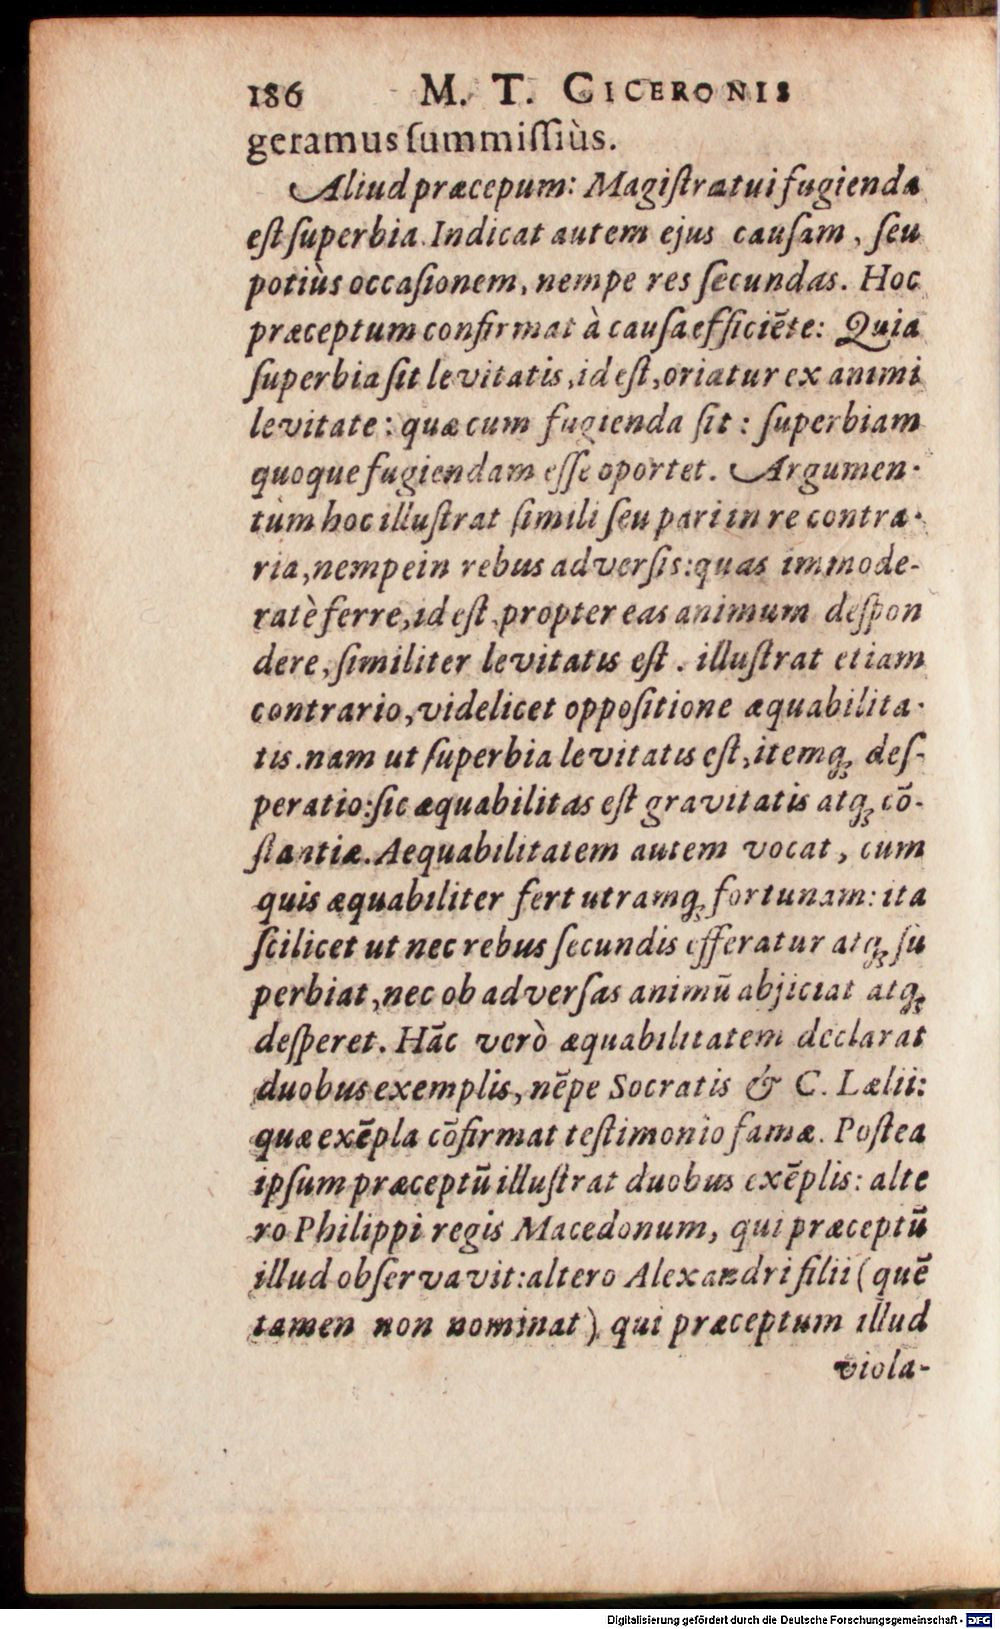 186 M. T. CICERONIS
geramus ſummiſſiùs.
Aliud præcepum: Magiſtratui fugienda
eſt ſuperbia. Indicat autem ejus cauſam, ſeu
potiùs occaſionem, nempe res ſecundas. Hoc
præceptum confirmat à cauſa efficiẽte: Quia
ſuperbia ſit levitatis, id eſt, oriatur ex animi
levitate: quæ cum fugienda ſit: ſuperbiam
quoque fugiendam eſſe oportet. Argumen-
tùm hoc illuſtrat ſimili ſeu pari in re contra-
ria, nempe in rebus adverſis: quas immode-
ratè ferre, id eſt, propter eas animum deſpon
dere, ſimiliter levitatis eſt. illuſtrat etiam
contrario, videlicet oppoſitione æquabilita-
tis. nam ut ſuperbia levitatis eſt, itemq́ꝫ deſ-
peratio: ſic æquabilitas eſt gravitatis atqꝫ cõ-
ſtantiæ. Aequabilitatem autem vocat, cum
quis æquabiliter fert utramqꝫ fortunam: ita
ſcilicet ut nec rebus ſecundis efferatur atqꝫ ſu
perbiat, nec ob adverſas animũ abjiciat atqꝫ
deſperet. Hãc verò æquabilitatem declarat
duobus exemplis, nẽpe Socratis & C. Lælii:
quæ exẽpla cõfirmat teſtimonio famæ. Poſtea
ipſum præceptũ illuſtrat duobus exẽplis: alte
ro Philippi regis Macedonum, qui præceptũ
illud obſervavit: altero Alexandri filii (quẽ
tamen non nominat) qui præceptum illud
viola-
Digitalisierung gefördert durch die Deutsche Forschungsgemeinschaft - DFG